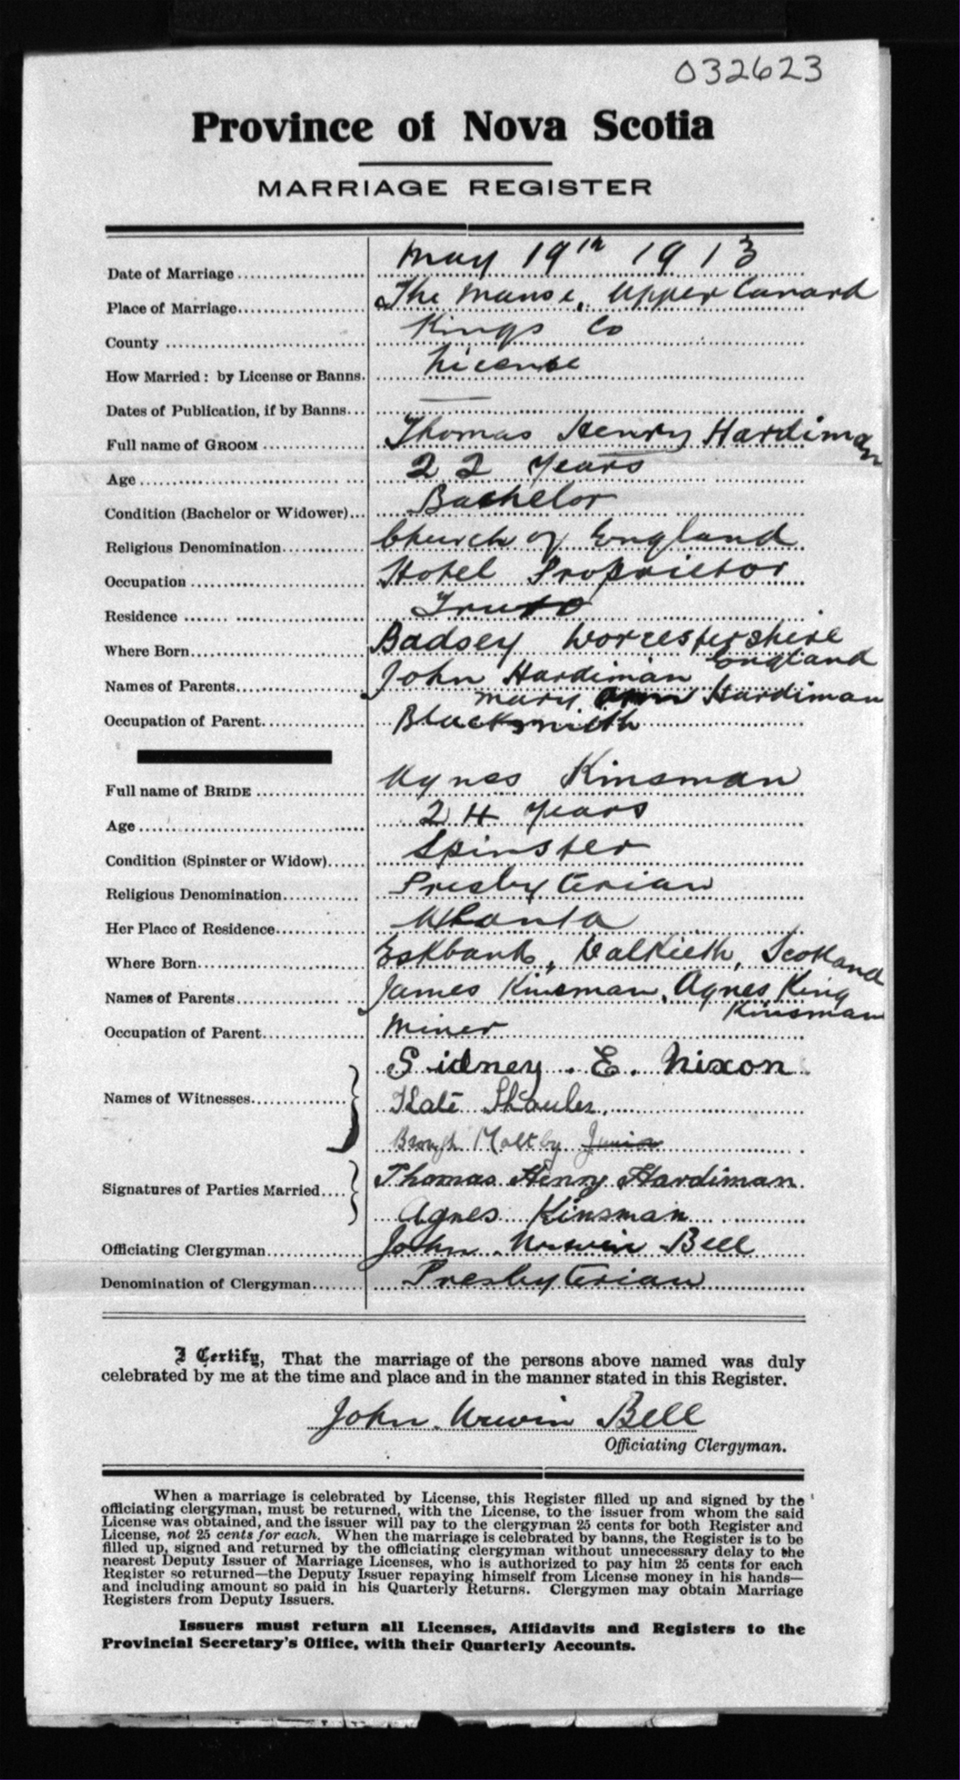 032623
Province of Nova Scotia
MARRIAGE REGISTER
Date of Marriage May 19th 1913
Place of Marriage The Manse, Upper Canard
County Kings Co
How Married: by License or Banns. License
Dates of Publication, if by Banns... —
Full name of GROOM Thomas Henry Hardiman
Age 22 years
Condition (Bachelor or Widower)... Bachelor
Religious Denomination Church of England
Occupation Hotel Proprietor
Residence Truro
Where Born Badsey Worcestershire
England
Names of Parents John Hardiman
Mary Ann Hardiman
Occupation of Parent Blacksmith
Full name of BRIDE Agnes Kinsman
Age 24 years
Condition (Spinster or Widow) Spinster
Religious Denomination Presbyterian
Her Place of Residence
Where Born Eskbank, Dalkieth, Scotland
Names of Parents James Kinsman, Agnes King
Kinsman
Occupation of Parent Miner
Sidney. E. Nixon
Names of Witnesses Kate
Brough Maltby Junior
Signatures of Parties Married Thomas Henry Hardiman.
Agnes Kinsman
Officiating Clergyman John Urwin Bell
Denomination of Clergyman Presbyterian
I Certify, That the marriage of the persons above named was duly
celebrated by me at the time and place and in the manner stated in this Register.
John Urwin Bell
Officiating Clergyman.
When a marriage is celebrated by License, this Register filled up and signed by the
officiating clergyman, must be returned, with the License, to the issuer from whom the said
License was obtained, and the issuer will pay to the clergyman 25 cents for both Register and
License, not 25 cents for each. When the marriage is celebrated by banns, the Register is to be
filled up, signed and returned by the officiating clergyman without unnecessary delay to the
nearest Deputy Issuer of Marriage Licenses, who is authorized to pay him 25 cents for each
Register so returned—the Deputy Issuer repaying himself from License money in his hands—
and including amount so paid in his Quarterly Returns. Clergymen may obtain Marriage
Registers from Deputy Issuers.
Issuers must return all Licenses, Affidavits and Registers to the
Provincial Secretary's Office, with their Quarterly Accounts.